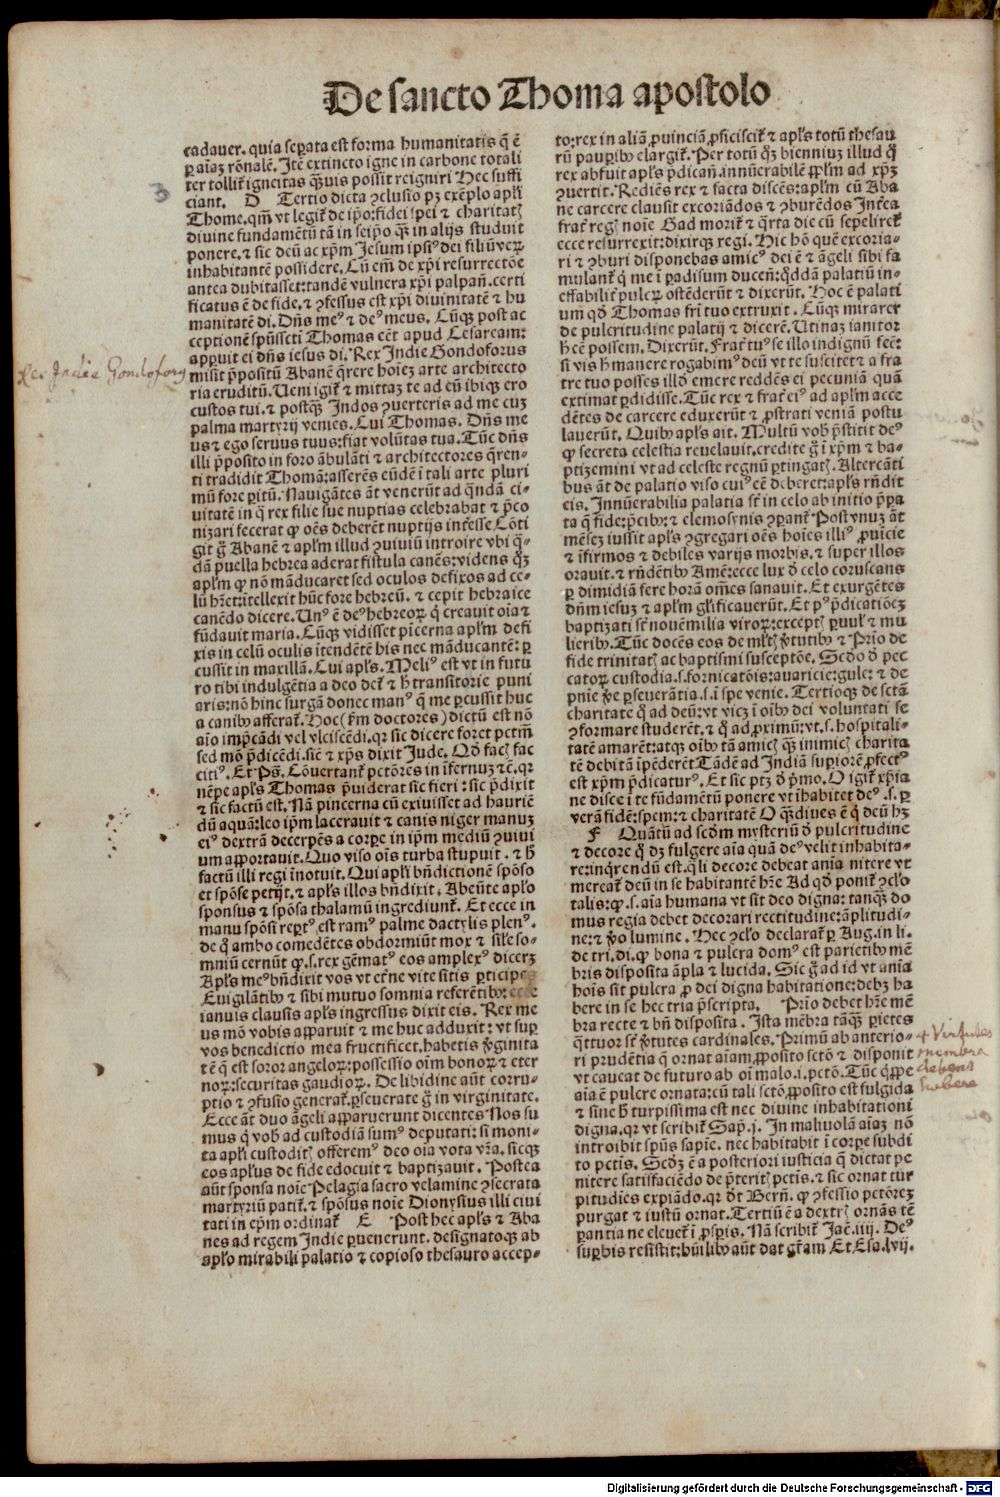 De sancto Thoma apostolo
cadauer. quia seꝑata est forma humanitatis q̃ ē
ꝑ aīaꝫ rōnalē. Itē extincto igne in carbone totali
ter tollit᷑ igneitas q̃uis possit reigniri Hec suffi
ciant. D Tertio dicta ꝯclusio pꝫ exēplo apl̄i
Thome. qm̄ vt legit᷑ de ip̄o: fidei spei ⁊ charitatꝭ
diuine fundamētū tā in seip̄o q̄ꝫ in alijs studuit
ponere. ⁊ sic deū ac xp̄m Jesum ipsiꝰ dei filiū veꝝ
inhabitantē possidere. Cū em̄ de xp̄i resurrectōe
antea dubitasset: tandē vulnera xp̄i palpan̄. certi
ficatus ē de fide. ⁊ ꝯfessus est xp̄i diuinitatē ⁊ hu
manitatē di. Dn̄s meꝰ ⁊ deꝰ meus. Cūqꝫ post ac
ceptionē spūsscti Thomas eēt apud Cesaream:
appuit ei dn̄s iesus di. Rex Indie Gondoforus
misit p̄positū Abanē q̄rere hoiēꝫ arte architecto
ria eruditū. Ueni igit᷑ ⁊ mittaꝫ te ad eū ibiqꝫ ero
custos tui. ⁊ postq̄ꝫ Indos ꝯuerteris ad me cuꝫ
palma martyrij venies. Cui Thomas. Dn̄s me
us ⁊ ego seruus tuus: fiat volūtas tua. Tūc dn̄s
illi p̄posito in foro ābulāti ⁊ architectores q̄ren-
ti tradidit Thomā: asserēs eūdē ī tali arte pluri
mū fore ꝑitū. Nauigātes āt venerūt ad q̄ndā ci-
uitatē in q̄ rex filie sue nuptias celebrabat ⁊ p̄co
nizari fecerat ꝙ oēs deberēt nuptijs int̄esse Cōti
git g̊ Abanē ⁊ apl̄m illud ꝯuiuiū introire vbi q̄-
dā puella hebrea aderat fistula canēs: vidēs q̊ꝫ
apl̄m ꝙ nō māducaret sed oculos defixos ad ce-
lū hr̄et: ītellexit hūc fore hebreū. ⁊ cepit hebraice
canēdo dicere. Unꝰ ē deꝰ hebreoꝝ q̇ creauit oīa ⁊
fūdauit maria. Cūqꝫ vidisset pīcerna apl̄m defi
xis in celū oculis ītendētē his nec māducantē: ꝑ
cussit in maxillā. Cui apl̄s. Meliꝰ est vt in futu
ro tibi indulgētia a deo det᷑ ⁊ h̄ transitorie puni
aris: nō hinc surgā donec manꝰ q̄ me ꝑcussit huc
a canibꝰ afferat᷑. Hoc (fm̄ doctores) dictū est nō
aīo imp̄cādi vel vlciscēdi. qꝛ sic dicere foret pctm̄
sed mō p̄dicēdi. sic̄ ⁊ xp̄s dixit Jude. Qd̊ facis fac
citiꝰ. Et Ps̄. Cōuertant᷑ pctōres in īfernuꝫ ⁊c̄. qꝛ
nēpe apl̄s Thomas p̄uiderat sic fieri: sic p̄dixit
⁊ sic factū est. Nā pincerna cū exiuisset ad hauriē
dū aquā: leo ip̄m lacerauit ⁊ canis niger manuꝫ
eiꝰ dextrā decerpēs a corpe in ip̄m mediū ꝯuiui
um apportauit. Quo viso oīs turba stupuit. ⁊ h̄
factū illi regi īnotuit. Qui apl̄i bn̄dictionē spōso
et spōse petijt. ⁊ apl̄s illos bn̄dixit. Abeūte apl̄o
sponsus ⁊ spōsa thalamū ingrediunt᷑. Et ecce in
manu spōsi reptꝰ est ramꝰ palme dactylis plenꝰ.
de q̊ ambo comedētes obdormiūt mox ⁊ sīle so-
mniū cernūt ꝙ. s. rex gēmatꝰ eos amplexꝰ dicerꝫ
Apl̄s meꝰ bn̄dixit vos vt et̄ne vite sitis ꝑticipes
Euigilātibꝰ ⁊ sibi mutuo somnia referētibꝰ: ecce
ianuis clausis apl̄s ingressus dixit eis. Rex me
us mō vobis apparuit ⁊ me huc adduxit: vt suꝑ
vos benedictio mea fructificet. habetis v̄ginita
tē q̄ est soror angeloꝝ: possessio oīm bonoꝝ ⁊ eter
noꝝ: securitas gaudioꝝ. De libidine aūt corru-
ptio ⁊ ꝯfusio generat᷑. ꝑseuerate g̊ in virginitate.
Ecce āt duo āgeli apparuerunt dicentes Nos su
mus q̇ vob̄ ad custodiā sumꝰ deputati: si moni-
ta apl̄i custoditꝭ offeremꝰ deo oīa vota vr̄a. sicqꝫ
eos apl̄us de fide edocuit ⁊ baptizauit. Postea
aūt sponsa noīe Pelagia sacro velamine ꝯsecrata
martyriū patit᷑. ⁊ spōsus noīe Dionysius illi ciui
tati in ep̄m ordinat᷑ E Post hec apl̄s ⁊ Aba
nes ad regem Indie ꝑuenerunt. designatoqꝫ ab
apl̄o mirabili palatio ⁊ copioso thesauro accep-
to: rex in aliā ꝓuinciā ꝓficiscit᷑ ⁊ apl̄s totū thesau
rū pauꝑibꝰ elargit᷑. Per totū q̊ꝫ bienniuꝫ illud q̊
rex abfuit apl̄s p̄dican̄. innūerabilē ppl̄m ad xp̄ꝫ
ꝯuertit. Rediēs rex ⁊ facta discēs: apl̄m cū Aba
ne carcere clausit excoriādos ⁊ ꝯburēdos Int̄ea
frat᷑ regꝭ noīe Gad morit᷑ ⁊ q̄rta die cū sepeliret᷑
ecce resurrexit: dixitqꝫ regi. Hic hō quē excoria-
ri ⁊ ꝯburi disponebas amicꝰ dei ē ⁊ āgeli sibi fa
mulant᷑ q̇ me ī padisum ducen̄: q̊ddā palatiū in-
effabilit᷑ pulcꝝ ostēderūt ⁊ dixerūt. Hoc ē palati
um qd̊ Thomas fr̄i tuo extruxit. Cūqꝫ mirarer
de pulcritudine palatij ⁊ dicerē. Utinaꝫ ianitor
hꝰ eē possem. Dixerūt. Frat᷑ tuꝰ se illo indignū fec̄:
si vis h̄ manere rogabimꝰ deū vt te suscitet ⁊ a fra
tre tuo posses illd̊ emere reddēs ei pecuniā quā
extimat ꝑdidisse. Tūc rex ⁊ frat᷑ eiꝰ ad apl̄m acce
dētes de carcere eduxerūt ⁊ ꝓstrati veniā postu
lauerūt. Quibꝰ apl̄s ait. Multū vob̄ p̄stitit deꝰ
ꝙ secreta celestia reuelauit. credite g̊ ī xp̄m ⁊ ba-
ptizemini vt ad celeste regnū ꝑtingatꝭ. Altercāti
bus āt de palatio viso cuiꝰ eē deberet: apl̄s rn̄dit
eis. Innūerabilia palatia st̄ in celo ab initio p̄pa
ta q̄ fide: p̄cibꝰ: ⁊ elemosynis ꝯꝑant᷑ Post vnuꝫ āt
mēseꝫ iussit apl̄s ꝯgregari oēs hoīes illiꝰ ꝓuīcie
⁊ īfirmos ⁊ debiles varijs morbis. ⁊ super illos
orauit. ⁊ rn̄dētibꝰ Amē: ecce lux d̊ celo coruscans
ꝑ dimidiā fere horā om̄es sanauit. Et exurgētes
dn̄m iesuꝫ ⁊ apl̄m gl̄ificauerūt. Et pꝰ p̄dicatiōeꝫ
baptizati st̄ nouēmilia viroꝝ: exceptꝭ ꝑuul̄ ⁊ mu
lieribꝰ. Tūc docēs eos de ml̄tꝭ v̄tutibꝰ ⁊ Prīo de
fide trinitatꝭ ac baptismi susceptōe. Scd̊o d̊ pec
catoꝝ custodia. s. fornicatōis: auaricie: gule: ⁊ de
pnīe v̄e ꝑseuerātia. s. ī spe venie. Tertioqꝫ de sctā
charitate q̄ ad deū: vt vicꝫ ī oībꝰ dei voluntati se
ꝯformare studerēt. ⁊ q̄ ad ꝓximū: vt. s. hospitali-
tatē amarēt: atqꝫ oībꝰ tā amicꝭ q̄ꝫ inimicꝭ charita
tē debitā īpēderēt Tādē ad Indiā supiorē ꝓfectꝰ
est xp̄m p̄dicaturꝰ. Et sic ptꝫ d̊ p̄mo. O igit᷑ xp̄ia
ne disce ī te fūdamētū ponere vt ihabitet deꝰ. s. ꝑ
verā fidē: spem: ⁊ charitatē O q̄ꝫdiues ē q̇ deū hꝫ
F Quātū ad scd̊m mysteriū d̊ pulcritudine
⁊ decore q̊ dꝫ fulgere aīa quā deꝰ velit inhabita-
re: inq̇rendū est. q̄li decore debeat aīa nitere vt
mereat᷑ deū in se habitantē hr̄e Ad qd̊ ponit᷑ ꝯcl̊o
talis: ꝙ. s. aīa humana vt sit deo digna: tanq̄ꝫ do
mus regia debet decorari rectitudine: āplitudi-
ne: ⁊ v̊o lumine. Hec ꝯcl̊o declarat᷑ ꝑ Aug. in li.
de tri. di. ꝙ bona ⁊ pulcra domꝰ est parietibꝰ mē
bris disposita āpla ⁊ lucida. Sic g̊ ad id vt anīa
hoīs sit pulcra ꝓ dei digna habitatione: debꝫ ha
bere in se hec tria p̄scripta. Prīo debet hr̄e mē
bra recte ⁊ bn̄ disposita. Ista mēbra tāq̄ꝫ parietes
q̄ttuor st̄ v̄tutes cardinales. Primū ab anterio-
ri prudētia q̄ ornat aīam. ꝓposito sctō ⁊ disponit
vt caueat de futuro ab oī malo. i. pctō. Tūc q̄ppe
aīa ē pulcre ornata: cū tali sctō ꝓposito est fulgida
⁊ sine h̄ turpissima est nec diuine inhabitationi
digna. qꝛ vt scribit᷑ Sap. j. In maliuolā aīaꝫ nō
introibit spūs sapīe. nec habitabit ī corpe subdi
to pctīs. Scd̊ꝫ ē a posteriori iusticia q̄ dictat pe
nitere satisfaciēdo de p̄teritꝭ pctīs. ⁊ sic ornat tur
pitudies expiādo. qꝛ d̊t Bern̄. ꝙ ꝯfessio pctōreꝫ
purgat ⁊ iustū ornat. Tertiū ē a dextrꝭ ornās tē
perantia ne eleuet᷑ ī ꝓsꝑis. Nā scribit᷑ Jac̄. iiij. Deꝰ
suꝑbis resistit: hūilibꝰ aūt dat gr̄am Et Esa. lvij.
Rex Indie Gondoforꝰ
4 Virtutes
membra
debens
habere
Digitalisierung gefördert durch die Deutsche Forschungsgemeinschaft - DFG